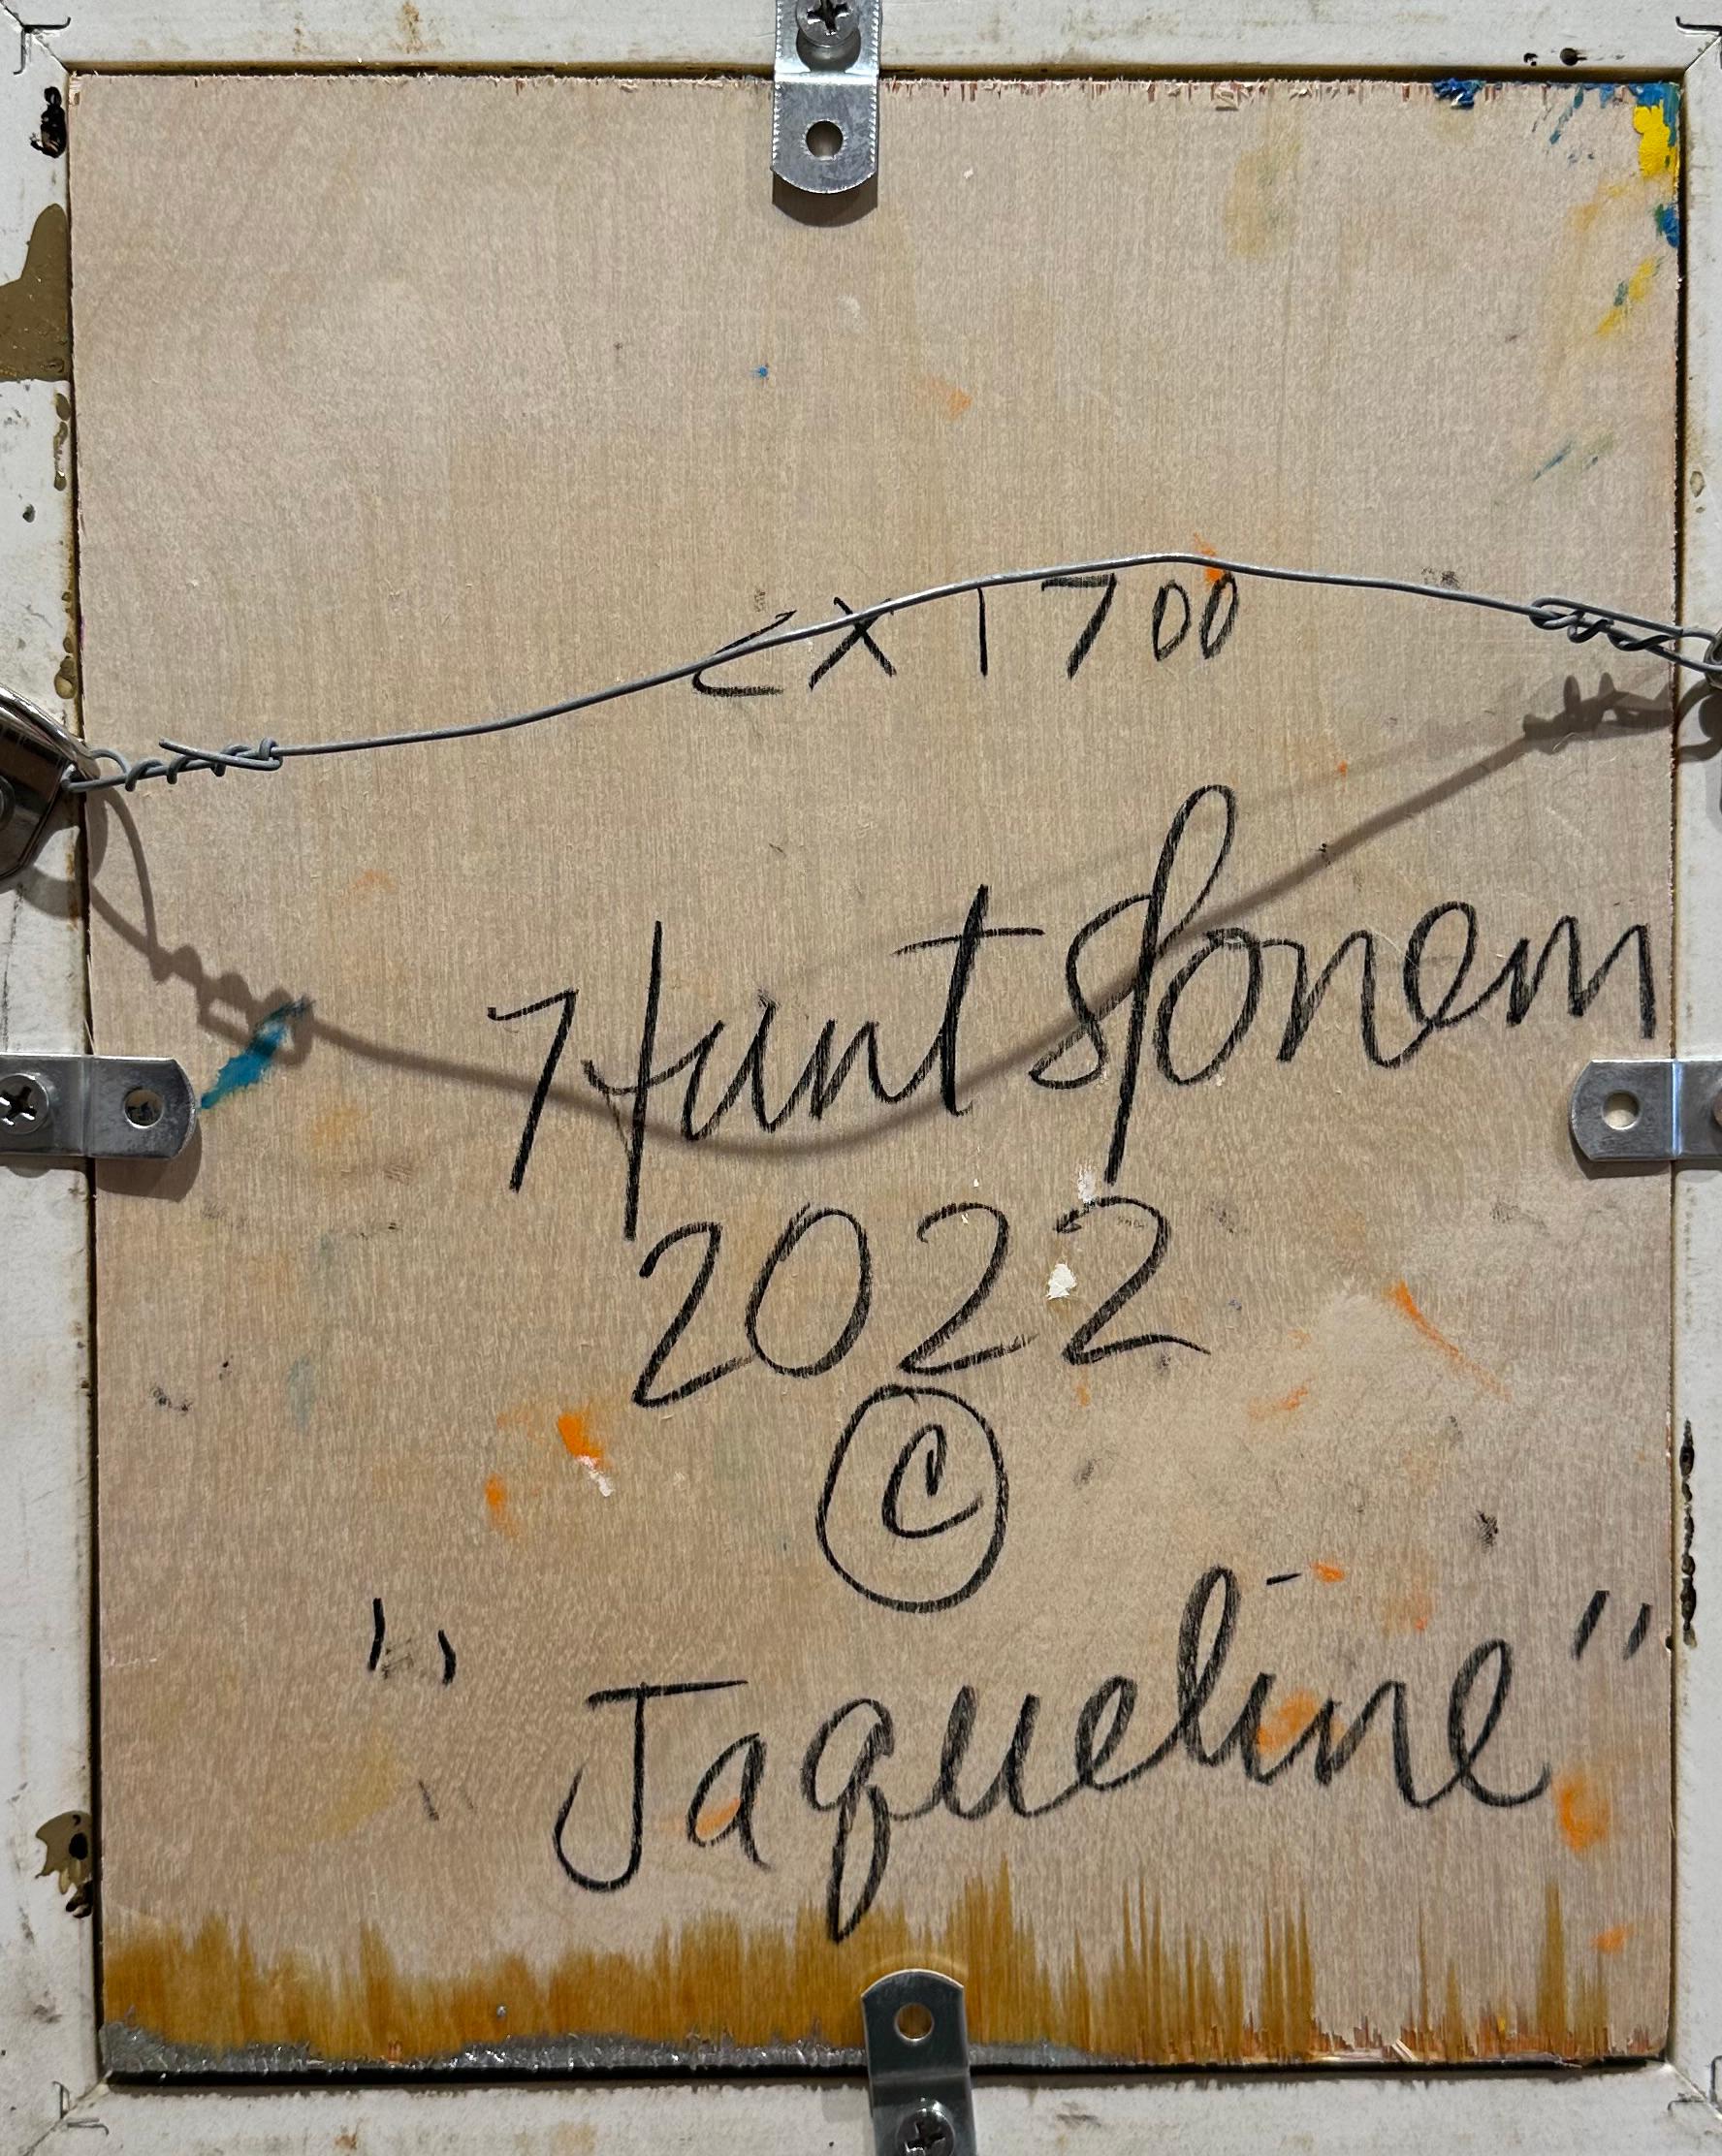 CX1700
Hunt Slonem
2022
©
"Jaqueline"